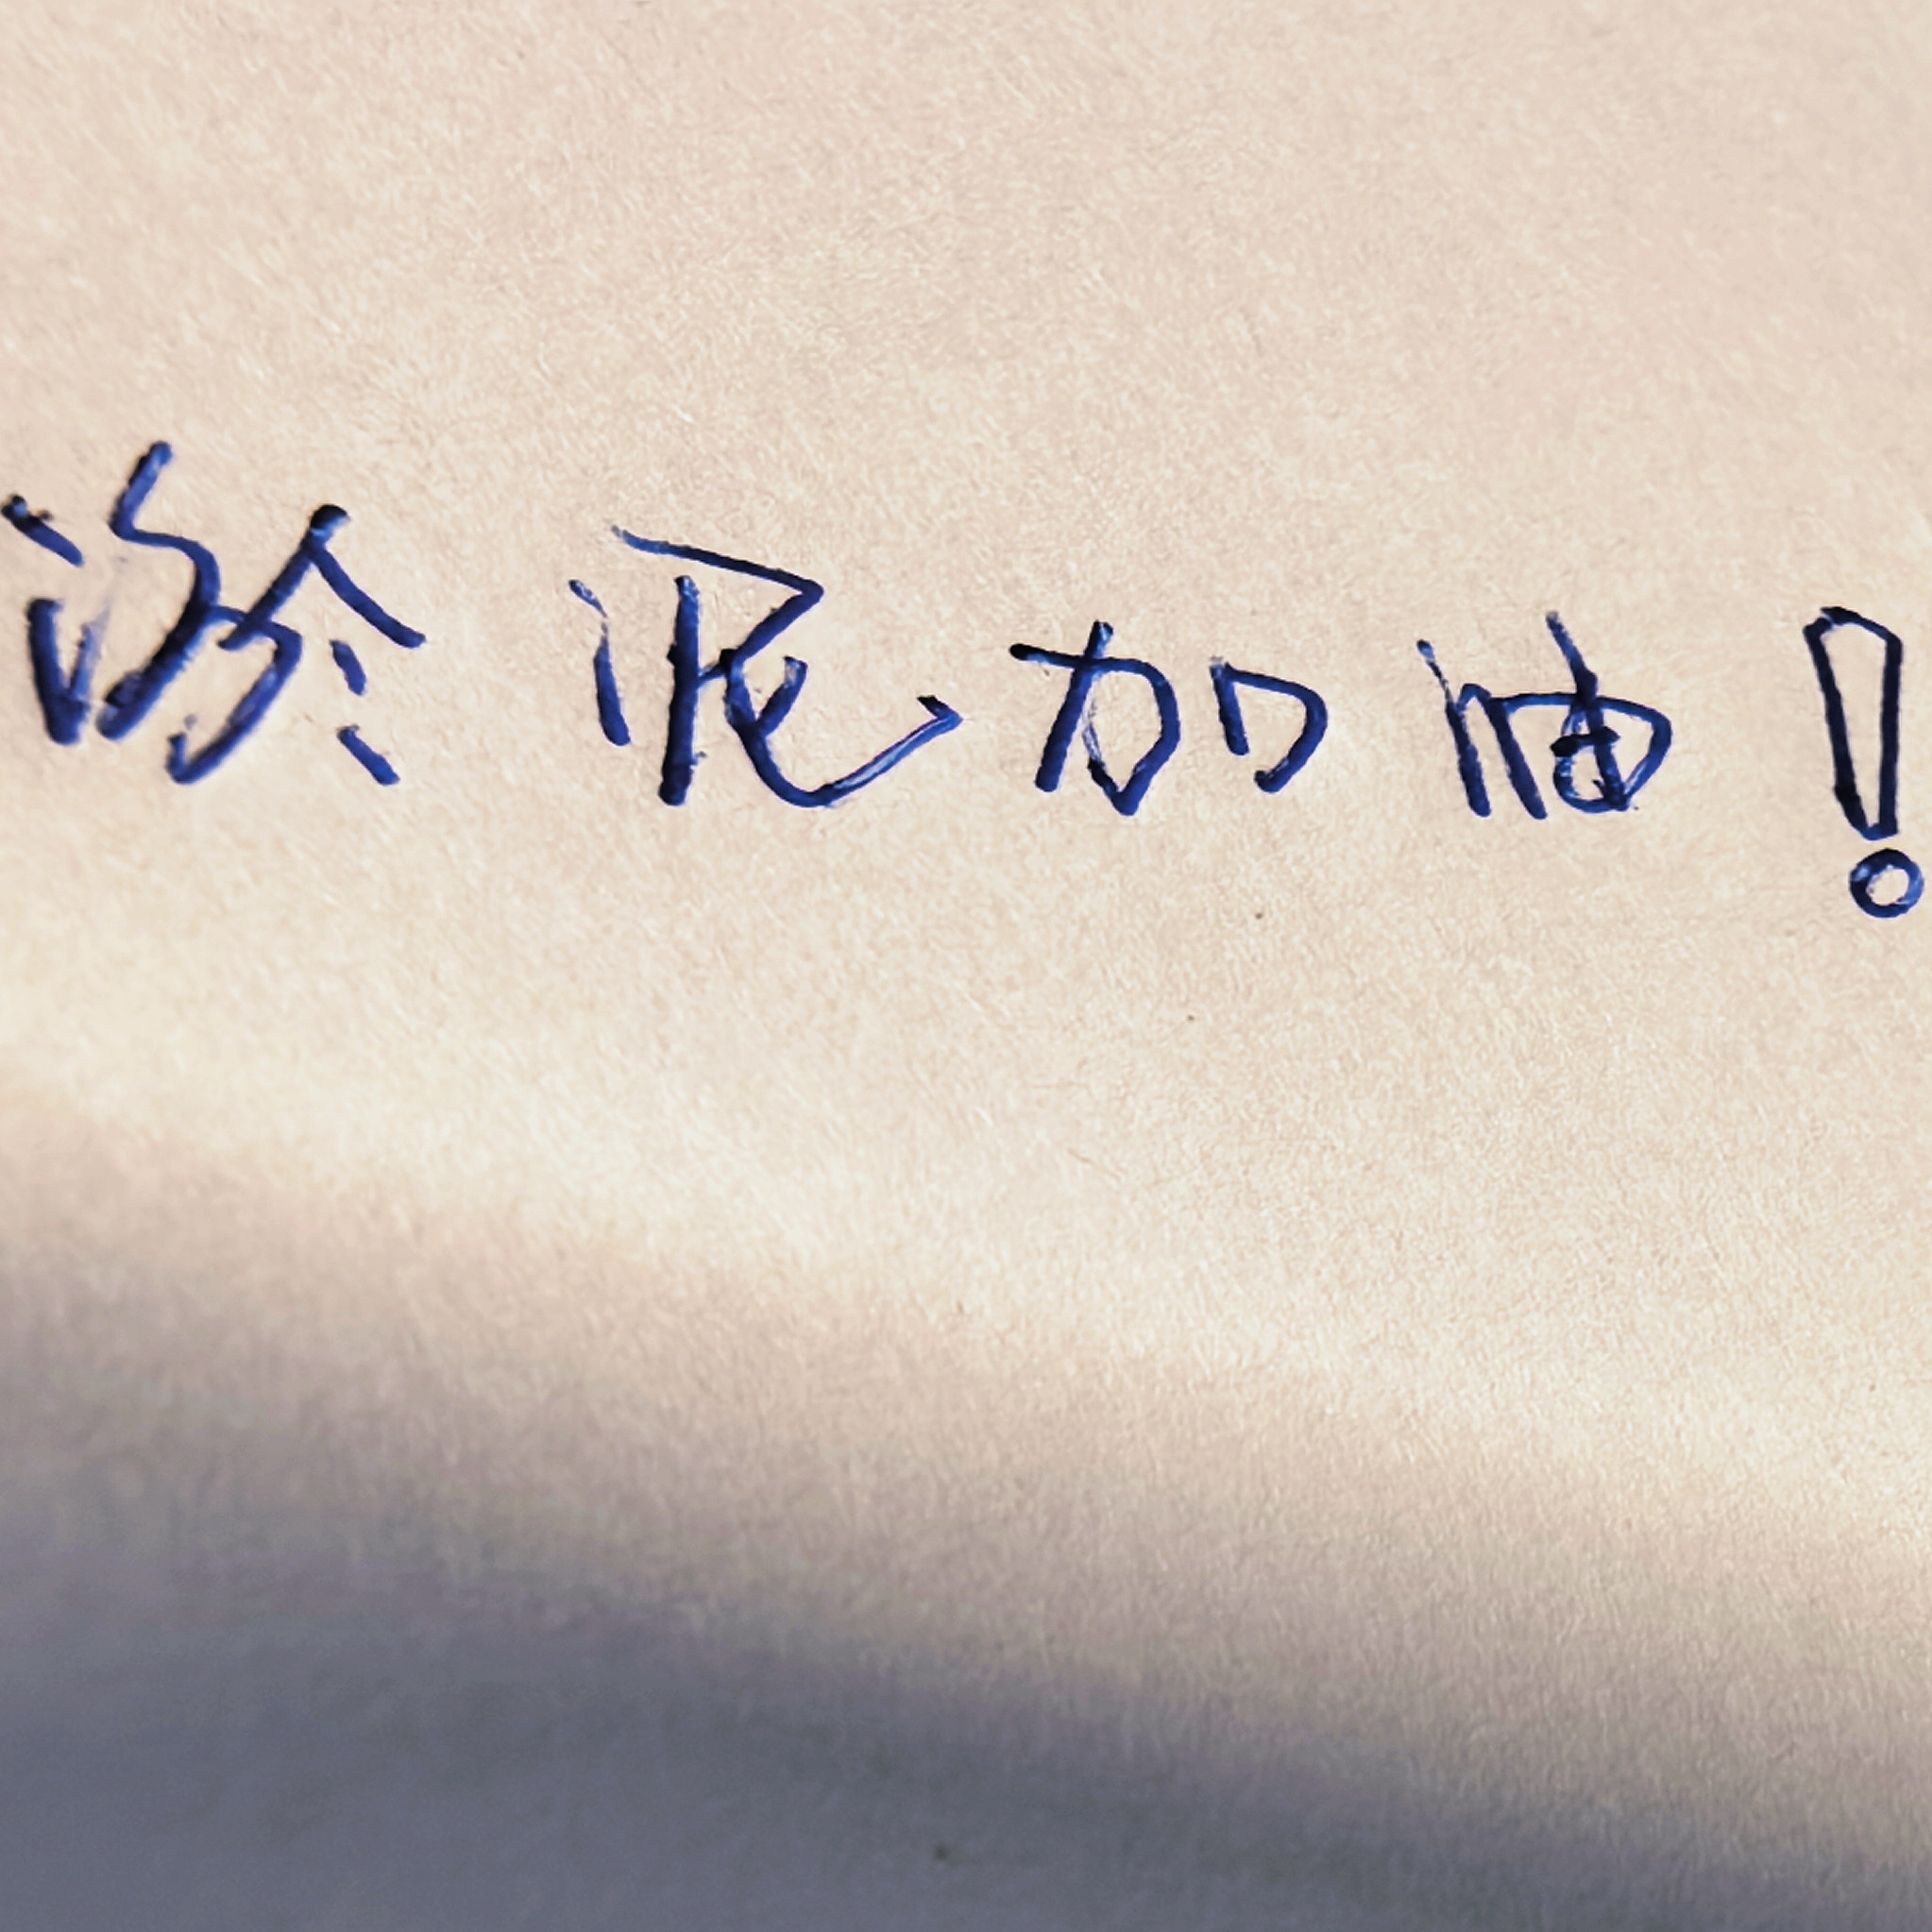 淤泥加油！